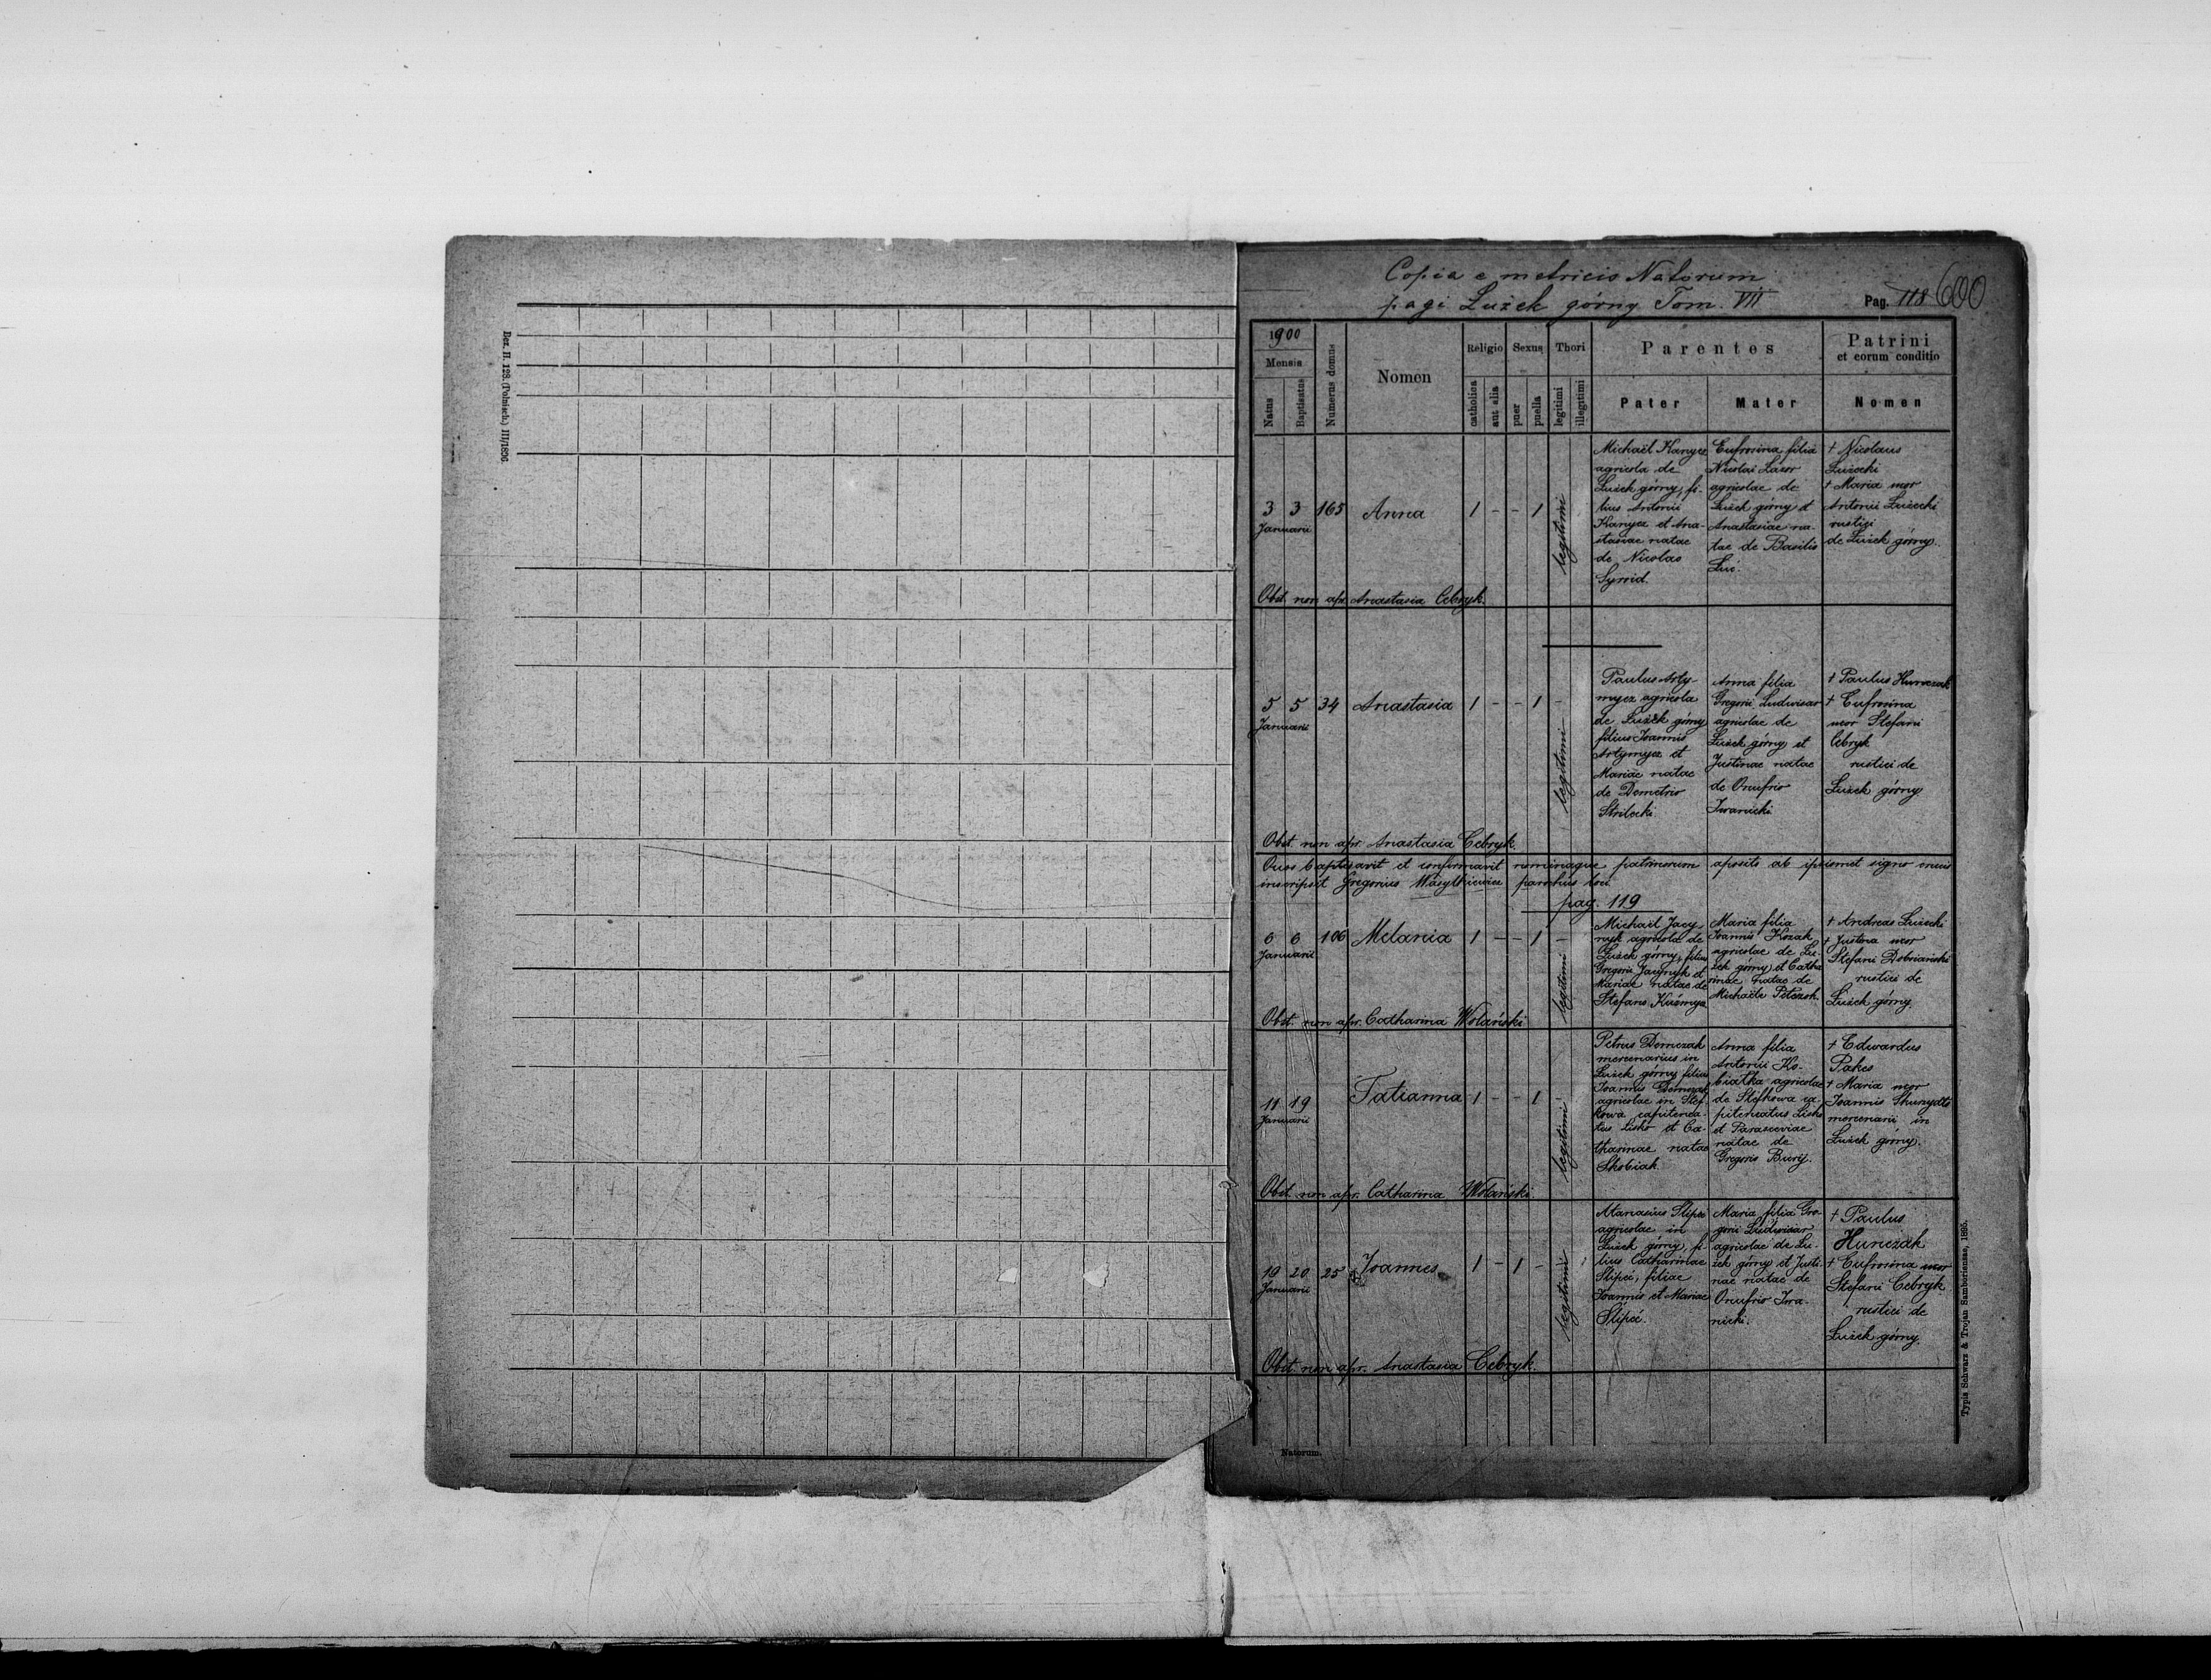 Bez. II. 128. (Polnisch.) III/1896.
Copia e metricis Natorum
pagi Łużek górny Tom. VII
Pag. 118 600
1900
Mensis
Natus
Baptisatus
Numerus domus
Nomen
Religio
catholica
aut alia
Sexus
puer
puella
Thori
legitimi
illegitimi
Parentes
Pater
Mater
Patrini
et eorum conditio
Nomen
3 3 165 Anna 1 - - 1 -
Januarii
legitimi
Michaël Kanycz
agricola de
Łużek górny, fi-
lius Antonii
Kanycz et Ana-
stasiae natae
de Nicolao
Eufrosina filia
Nicolai Lazor
agricolae de
Łużek górny et
Anastasiae na-
tae de Basilio
† Nicolaus
Łużecki
† Maria uxor
Antonii Łużecki
rustici
de Łużek górny.
Obst. non apr. Anastasia Cebryk.
5 5 34 Anastasia 1 - - 1 -
Januarii
legitimi
Paulus Arty-
mycz agricola
de Łużek górny
filius Joannis
Artymycz et
Mariae natae
de Demetrio
Strilecki
Anna filia
Gregorii Ludwisar
agricolae de
Łużek górny et
Justinae natae
de Onufrio
Iwanicki
† Paulus Hunczak
† Eufrosina
uxor Stefani
Cebryk
rustici de
Łużek górny
Obst. non apr. Anastasia Cebryk.
Quos baptisavit et confirmavit nominaque patrinorum apposito ab ipsismet signo crucis
inscripsit Gregorius Wasylkiewicz parochus loci.
pag. 119
6 6 106 Melania 1 - - 1 -
Januarii
legitimi
Michaël Jacy-
nyk agricola de
Łużek górny, filius
Gregorii Jacynyk et
Mariae natae de
Stefano Kuźmycz
Maria filia
Joannis Kozak
agricolae de Łu-
żek górny et Catha
rinae natae de
Michaële
† Andreas Łużecki
† Justina uxor
Stefani Dobriański
rustici de
Łużek górny.
Obst. non apr. Catharina Wolański
11 19 Tatianna 1 - - 1
Januarii
legitimi
Petrus Domczak
mercenarius in
Łużek górny, filius
Joannis Domczak
agricolae in Stef-
kowa capitanea-
tus Lisko et Ca-
tharinae natae
Skobiak.
Anna filia
Antonii Ko-
biatka agricolae
de Stefkowa ca-
piteneatus Lisko
et Parasceviae
natae de
Gregorio Buryj.
† Edwardus
Pakes
† Maria uxor
Joannis
mercenarii in
Łużek górny.
Obst. non apr. Catharina Wolański.
19 20 25 Joannes 1 - 1 -
Januarii
legitimi
Atanasius Slipeć
agricolae in
Łużek górny, fi-
lius Catharinae
Slipeć, filiae
Joannis et Mariae
Slipeć.
Maria filia Gre-
gorii Ludwisar
agricolae de Łu-
żek górny et Justi-
nae natae de
Onufrio Iwa-
nicki.
† Paulus
Hunczak
† Eufrosina uxor
Stefani Cebryk
rustici de
Łużek górny
Obst. non apr. Anastasia Cebryk.
Natorum.
Typis Schwarz & Trojan Samboriensae, 1895.